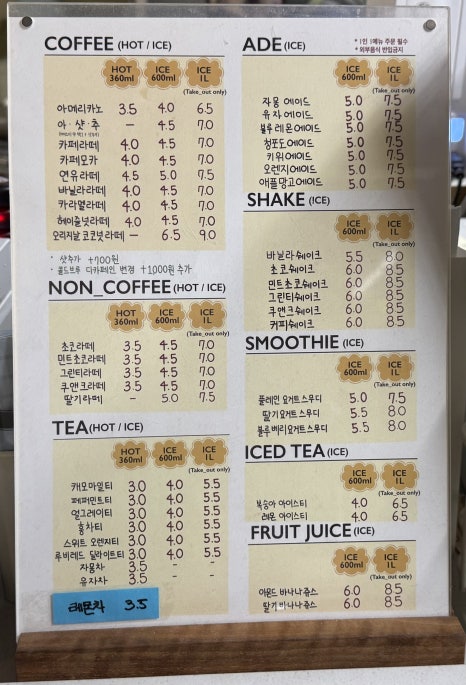 COFFEE (HOT / ICE)
HOT 360ml ICE 600ml ICE 1L
(Take_out only)
아메리카노 3.5 4.0 6.5
아·샷·추 – 4.5 7.0
카페라떼 4.0 4.5 7.0
카페모카 4.0 4.5 7.0
연유라떼 4.5 5.0 7.5
바닐라라떼 4.0 4.5 7.0
카라멜라떼 4.0 4.5 7.0
헤이즐넛라떼 4.0 4.5 7.0
오리지날 코코넛라떼 – 6.5 9.0
· 샷추가 +700원
· 콜드브루 디카페인 변경 +1000원 추가
NON_COFFEE (HOT / ICE)
HOT 360ml ICE 600ml ICE 1L
(Take_out only)
초코라떼 3.5 4.5 7.0
민트초코라떼 3.5 4.5 7.0
그린티라떼 3.5 4.5 7.0
쿠앤크라떼 3.5 4.5 7.0
딸기라떼 – 5.0 7.5
TEA (HOT / ICE)
HOT 360ml ICE 600ml ICE 1L
(Take_out only)
캐모마일티 3.0 4.0 5.5
페퍼민트티 3.0 4.0 5.5
얼그레이티 3.0 4.0 5.5
홍차티 3.0 4.0 5.5
스위트 오렌지티 3.0 4.0 5.5
루비레드 딜라이트티 3.0 4.0 5.5
자몽차 3.5 - -
유자차 3.5 - -
레몬차 3.5
ADE (ICE)
* 1인 1메뉴 주문 필수
* 외부음식 반입금지
ICE 600ml ICE 1L
(Take_out only)
자몽에이드 5.0 7.5
유자에이드 5.0 7.5
블루레몬에이드 5.0 7.5
청포도에이드 5.0 7.5
키위에이드 5.0 7.5
오렌지에이드 5.0 7.5
애플망고에이드 5.0 7.5
SHAKE (ICE)
ICE 600ml ICE 1L
(Take_out only)
바닐라쉐이크 5.5 8.0
초코쉐이크 6.0 8.5
민트초코쉐이크 6.0 8.5
그린티쉐이크 6.0 8.5
쿠앤크쉐이크 6.0 8.5
커피쉐이크 6.0 8.5
SMOOTHIE (ICE)
ICE 600ml ICE 1L
(Take_out only)
플레인요거트스무디 5.0 7.5
딸기요거트스무디 5.5 8.0
블루베리요거트스무디 5.5 8.0
ICED TEA (ICE)
ICE 600ml ICE 1L
(Take_out only)
복숭아 아이스티 4.0 6.5
레몬 아이스티 4.0 6.5
FRUIT JUICE (ICE)
ICE 600ml ICE 1L
(Take_out only)
아몬드 바나나쥬스 6.0 8.5
딸기바나나쥬스 6.0 8.5